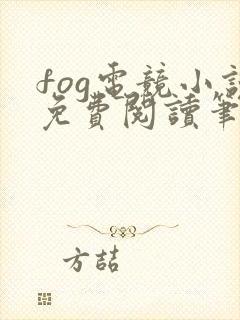 fog電競小說
免費閱讀筆
方喆